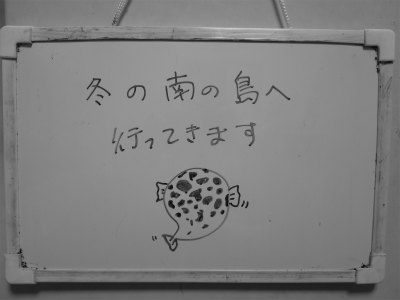 冬の南の島へ
行ってきます